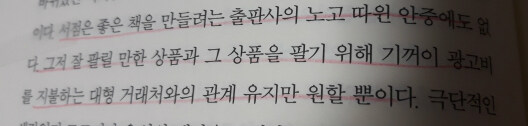 이다. 서점은 좋은 책을 만들려는 출판사의 노고 따윈 안중에도 없
다. 그저 잘 팔릴 만한 상품과 그 상품을 팔기 위해 기꺼이 광고비
를 지불하는 대형 거래처와의 관계 유지만 원할 뿐이다. 극단적인